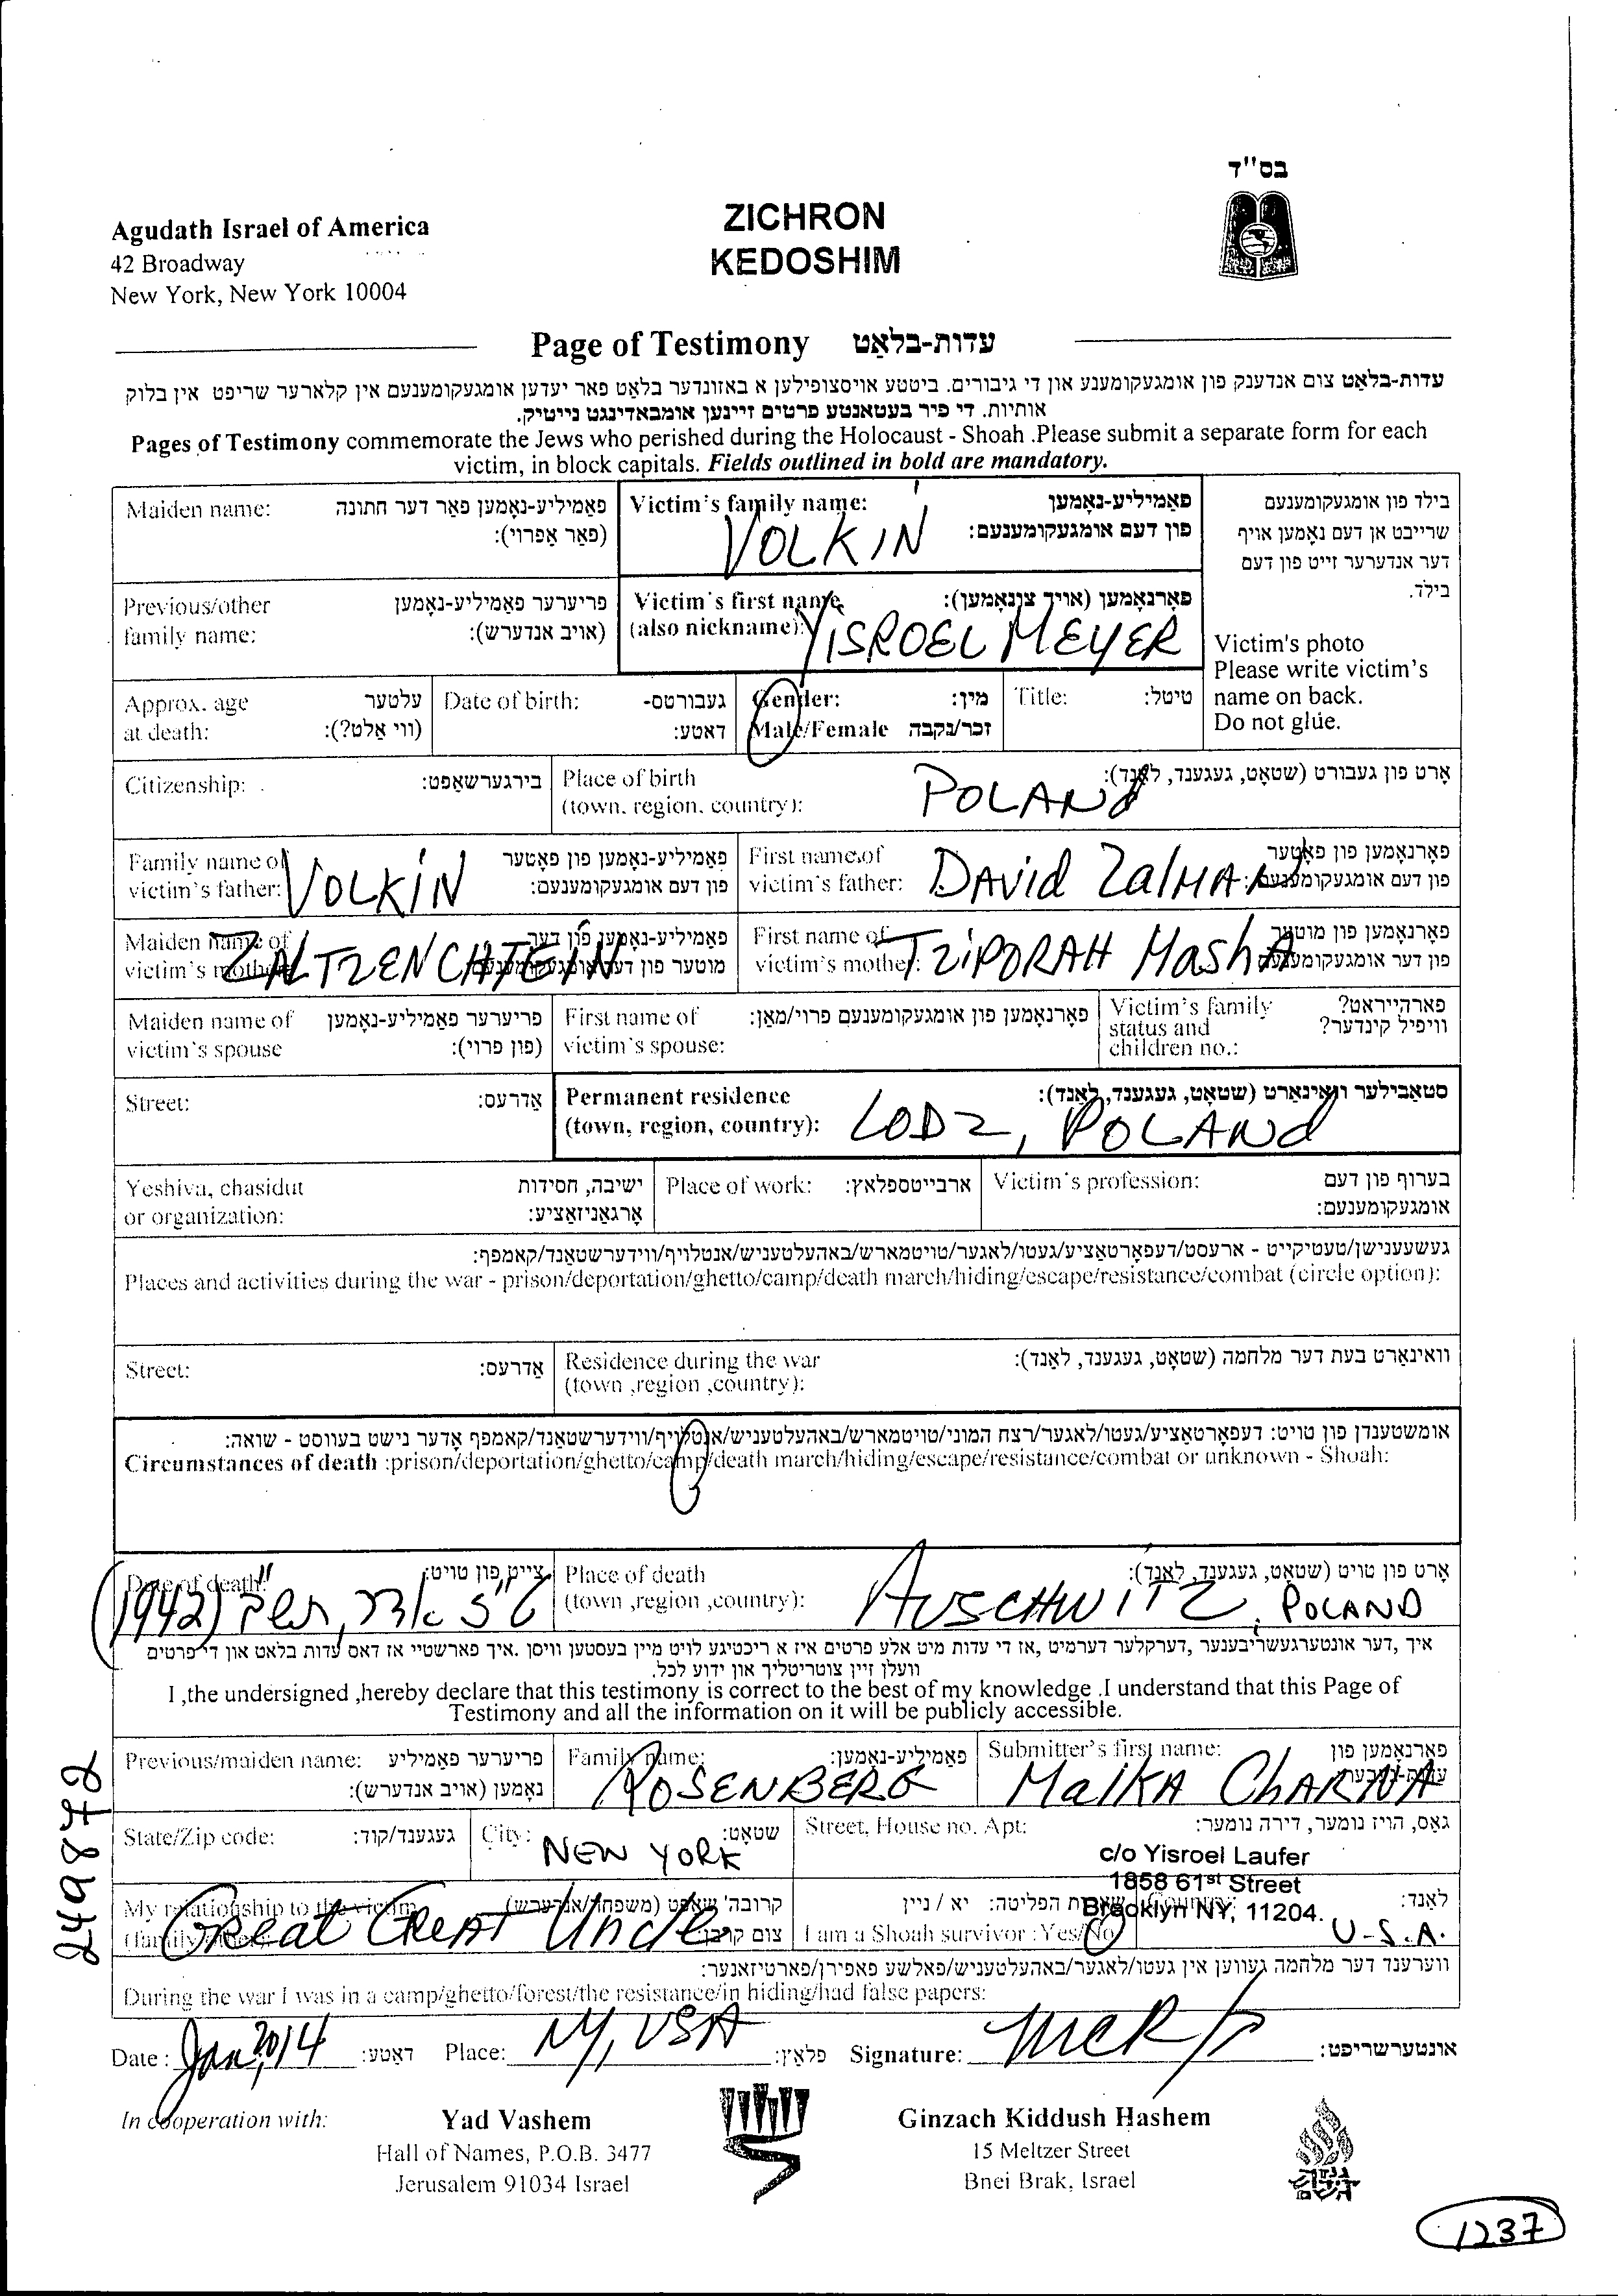 בס"ד
Agudath Israel of America
42 Broadway
New York, New York 10004
ZICHRON
KEDOSHIM
Page of Testimony עדות-בלאַט
עדות-בלאַט צום אנדענק פון אומגעקומענע און די גיבורים. ביטטע אויסצופילען א באזונדער בלאַט פאר יעדען אומגעקומענעם אין קלארער שריפט אין בלוק
אותיות. די פיר בעטאנטע פרטים זיינען אומבאדינגט נייטיק.
Pages of Testimony commemorate the Jews who perished during the Holocaust - Shoah .Please submit a separate form for each
victim, in block capitals. Fields outlined in bold are mandatory.
Maiden name: פאַמיליע-נאָמען פאַר דער חתונה
(פאַר אַפרוי):
Victim's family name: פאַמיליע-נאָמען
פון דעם אומגעקומענעם:
VOLKIN
בילד פון אומגעקומענעם
שרייבט אן דעם נאָמען אויף
דער אנדערער זייט פון דעם
בילד.
Previous/other פריערער פאַמיליע-נאָמען
family name: (אויב אנדערש):
Victim's first name פאָרנאָמען (אויך צונאָמען):
(also nickname):
YISROEL MEYER
Victim's photo
Please write victim's
name on back.
Do not glue.
Approx. age עלטער
at death: (ווי אלט?):
Date of birth: געבורטס-
דאטע:
Gender: מין:
Male/Female זכר/נקבה
Title: טיטל:
Citizenship: בירגערשאַפט:
Place of birth אָרט פון געבורט (שטאָט, געגענד, לאַנד):
(town, region, country):
POLANd
Family name of פאַמיליע-נאָמען פון פאָטער
victim's father: פון דעם אומגעקומענעם:
VOLKIN
First name of פאָרנאָמען פון פאָטער
victim's father: פון דעם אומגעקומענעם:
DAVid ZalMAN
Maiden name of פאַמיליע-נאָמען פון דער
victim's mother: מוטער פון דעם אומגעקומענעם
ZALTZENCHTEIN
First name of פאָרנאָמען פון מוטער
victim's mother: פון דער אומגעקומענעם
TZiPORAH MashA
Maiden name of פריערער פאַמיליע-נאָמען
victim's spouse (פון פרוי):
First name of פאָרנאָמען פון אומגעקומענעם פרוי/מאַן:
victim's spouse:
Victim's family פארהייראט?
status and וויפיל קינדער?
children no.:
Street: אַדרעס:
Permanent residence סטאַבילער וואוינאָרט (שטאָט, געגענד, לאַנד):
(town, region, country):
LODZ, POLANd
Yeshiva, chasidut ישיבה, חסידות
or organization: אָרגאַניזאַציע:
Place of work: ארבייטספלאץ:
Victim's profession: בערוף פון דעם
אומגעקומענעם:
געשעענישן/טעטיקייט - ארעסט/דעפאָרטאַציע/געטו/לאגער/טויטמארש/באהעלטעניש/אנטלויף/ווידערשטאַנד/קאמפף:
Places and activities during the war - prison/deportation/ghetto/camp/death march/hiding/escape/resistance/combat (circle option):
Street: אַדרעס:
Residence during the war וואוינאָרט בעת דער מלחמה (שטאָט, געגענד, לאַנד):
(town ,region ,country):
אומשטענדן פון טויט: דעפאָרטאַציע/געטו/לאגער/רצח המוני/טויטמארש/באהעלטעניש/אנטלויף/ווידערשטאַנד/קאמפף אָדער נישט בעוווסט - שואה:
Circumstances of death :prison/deportation/ghetto/camp/death march/hiding/escape/resistance/combat or unknown - Shoah:
Date of death: צייט פון טויט:
(1942)
Place of death אָרט פון טויט (שטאָט, געגענד, לאַנד):
(town ,region ,country):
AUSCHWITZ, POLAND
איך ,דער אונטערגעשריבענער ,דערקלער דערמיט ,אז די עדות מיט אלע פרטים איז א ריכטיגע לויט מיין בעסטען וויסן .איך פארשטיי אז דאס עדות בלאט און די פרטים
וועלן זיין צוטריטליך און ידוע לכל.
I ,the undersigned ,hereby declare that this testimony is correct to the best of my knowledge .I understand that this Page of
Testimony and all the information on it will be publicly accessible.
Previous/maiden name: פריערער פאַמיליע
נאָמען (אויב אנדערש):
Family name: פאַמיליע-נאָמען:
ROSENBERG
Submitter's first name: פאָרנאָמען פון
MalKA ChARNA
State/Zip code: געגענד/קוד:
City: שטאָט:
NEW YORK
Street, House no. Apt: גאַס, הויז נומער, דירה נומער:
c/o Yisroel Laufer
1858 61st Street
Brooklyn NY, 11204.
My relationship to the victim
Great Great Uncle
יא / ניין
I am a Shoah survivor :Yes/No
לאַנד:
U.S.A.
ווערענד דער מלחמה געווען אין געטו/לאגער/באהעלטעניש/פאלשע פאפירן/פארטיזאנער:
During the war I was in a camp/ghetto/forest/the resistance/in hiding/had false papers:
Date : Jan, 2014 דאטע: Place: NY, USA פלאץ: Signature: אונטערשריפט:
In cooperation with:
Yad Vashem
Hall of Names, P.O.B. 3477
Jerusalem 91034 Israel
Ginzach Kiddush Hashem
15 Meltzer Street
Bnei Brak, Israel
249872
1237